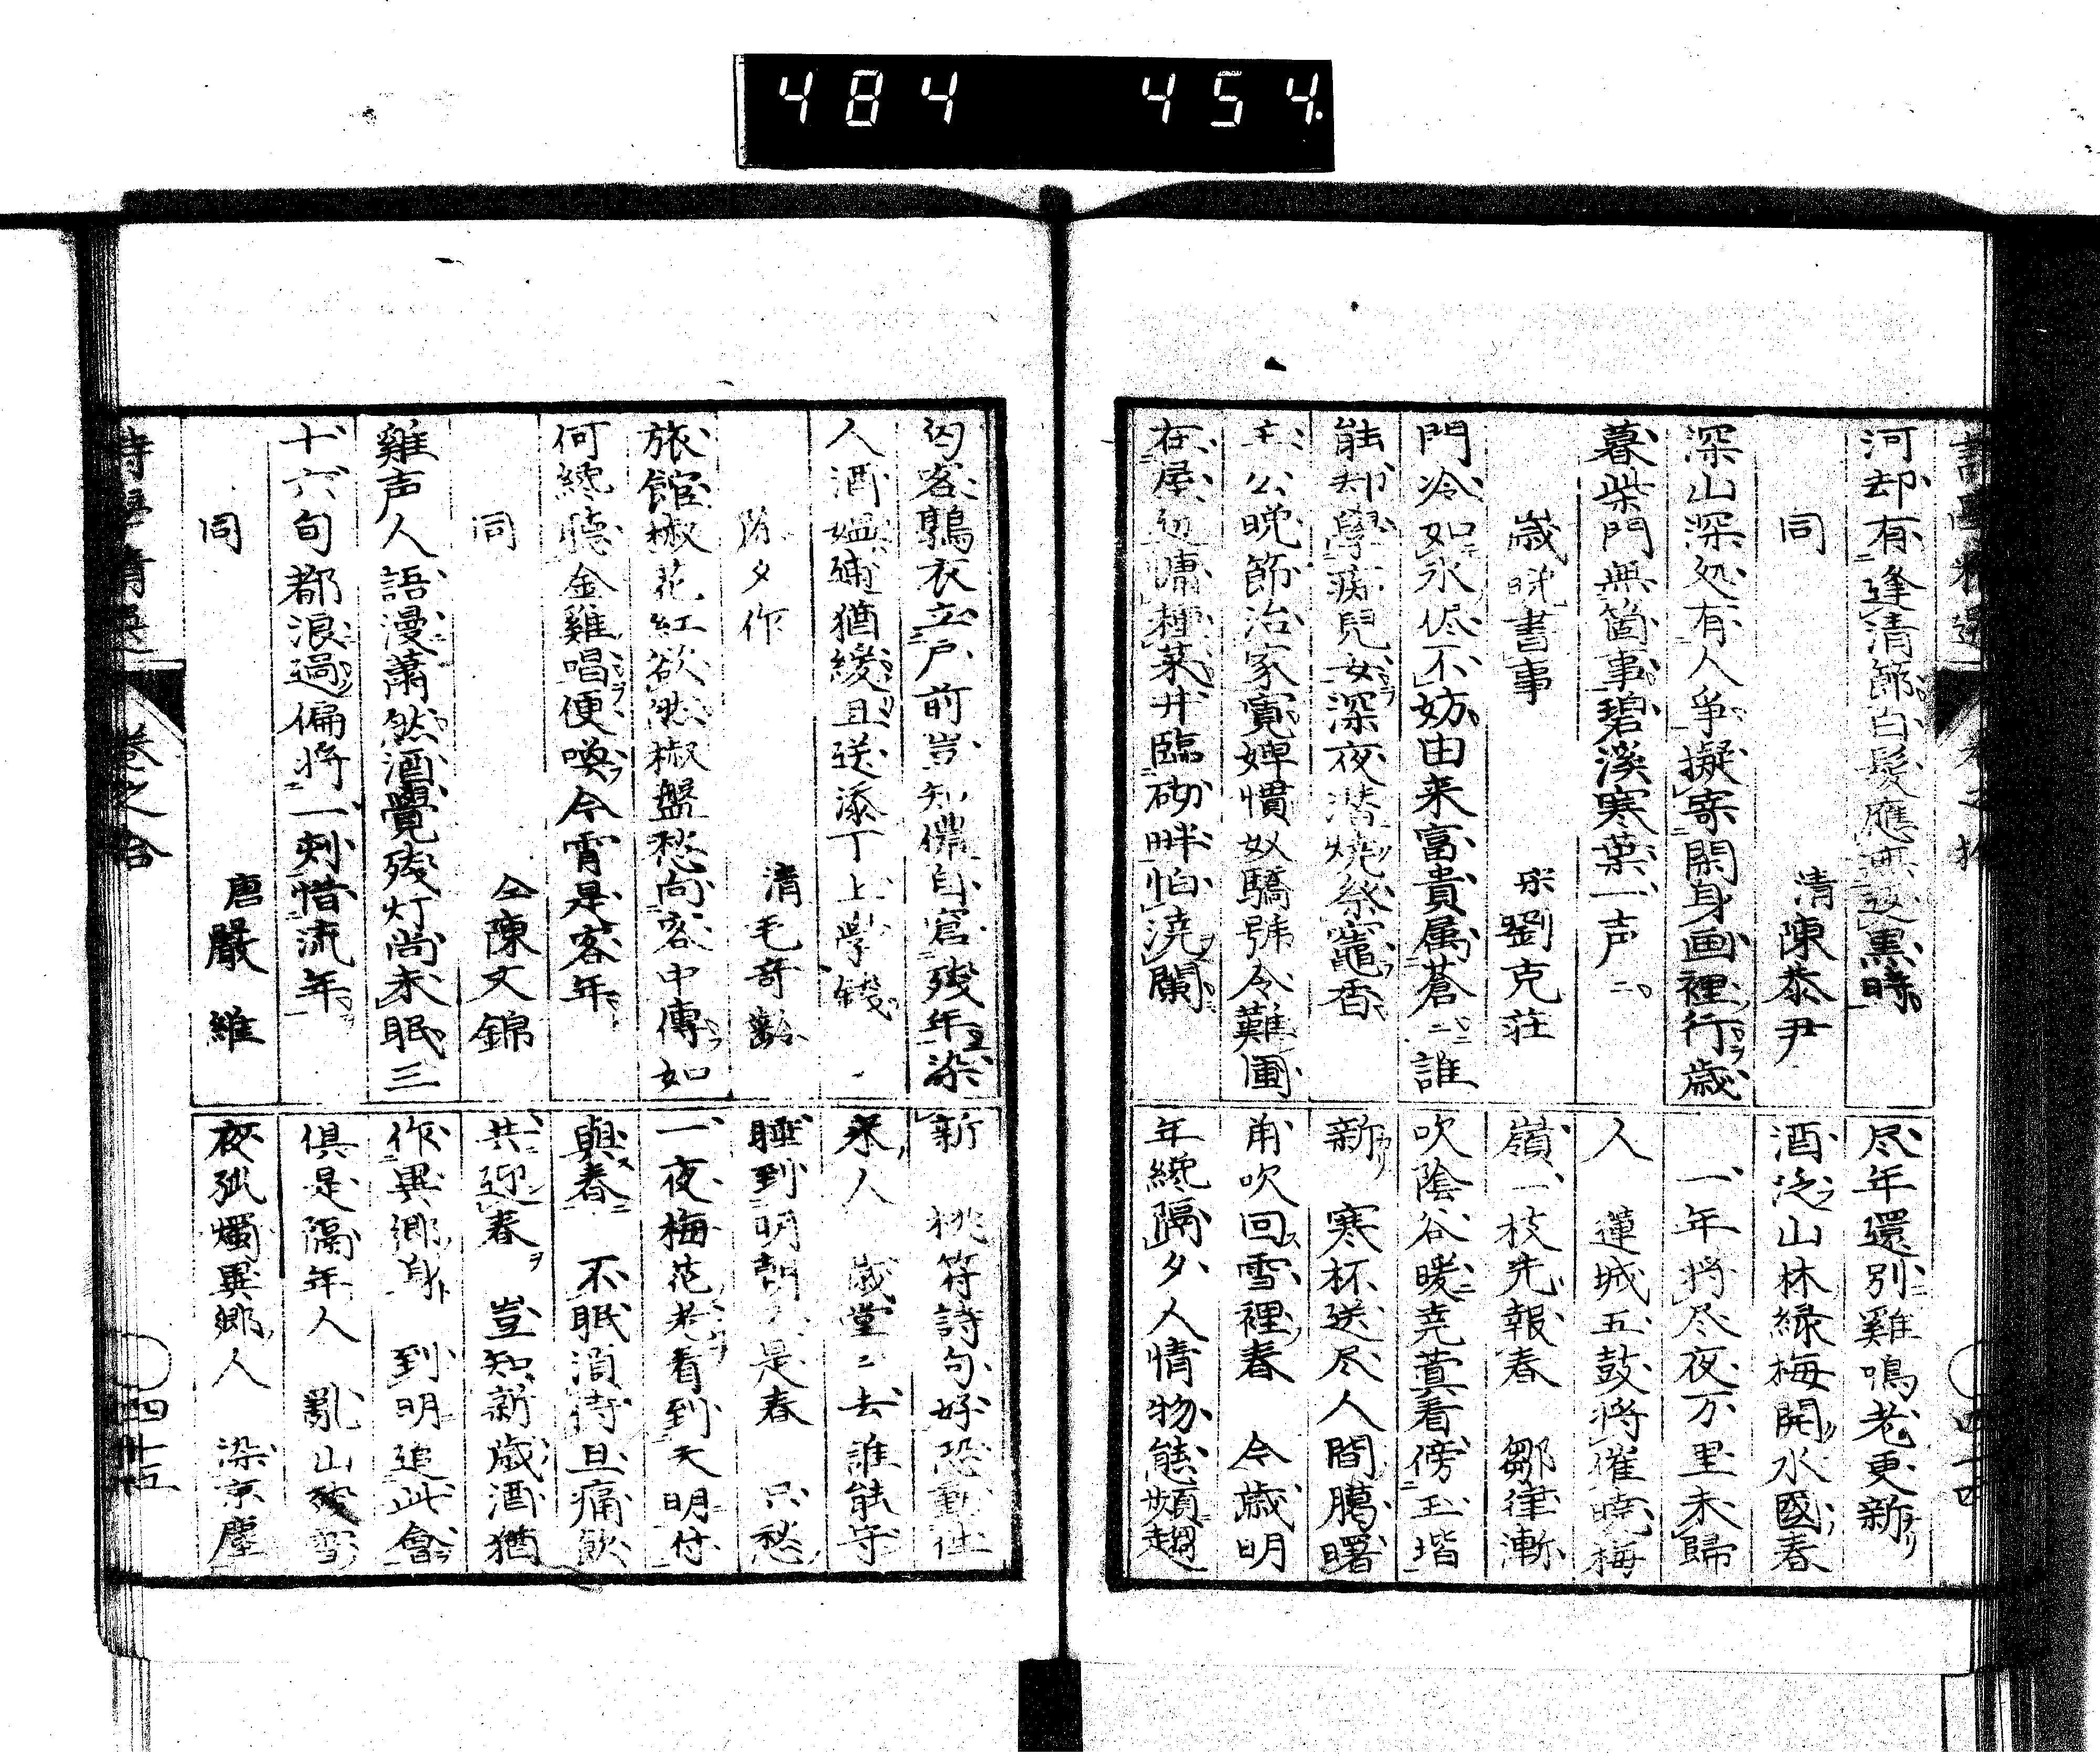 484 454.
河却有逢清節白髮應無返黒時
同 清陳恭尹
深山深処有人爭擬寄閑身画裡行歳
暮柴門無箇事碧溪寒葉一声ニ
歳晩書事 宋劉克荘
門冷如氷侭不妨由来富貴属蒼ニ誰
能却學痴兒女深夜潜焼祭竈香
主公晩節治家寛婢慣奴驕號令難圃
在屋邊慵種菜井臨砌畔怕澆蘭
尽年還別雞鳴老更新
酒泛山林緑梅開水國春
一年将尽夜万里未歸
人 蓮城五鼓将催暁梅
嶺一枝先報春 鄒律漸
吹陰谷暖堯蓂看傍玉堦
新 寒杯送尽人間臈曙
角吹回雪裡春 今歳明
年纔隔夕人情物態頻趨
四十四
匄客鶉衣立戸前豈知儂自窘残年染
人酒媼逋猶緩且送添丁上學錢
除夕作 清毛奇齡
旅館椒花紅欲然椒盤愁向客中傳如
何纔聴金雞唱便喚今宵是客年
同 仝陳文錦
雞声人語漫蕭然酒覺残灯尚未眠三
十六旬都浪過偏将一刻惜流年
同 唐嚴維
新 桃符詩句好恐動往
来人 歳堂ニ去誰能守
睡到明朝是春 只愁
一夜梅花老看到天明付
與春 不眠須待旦痛飲
共迎春 豈知新歳酒猶
作異郷身 到明追此會
倶是隔年人 亂山残雪
夜孤燭異郷人 染京塵
巻之拾
四十五